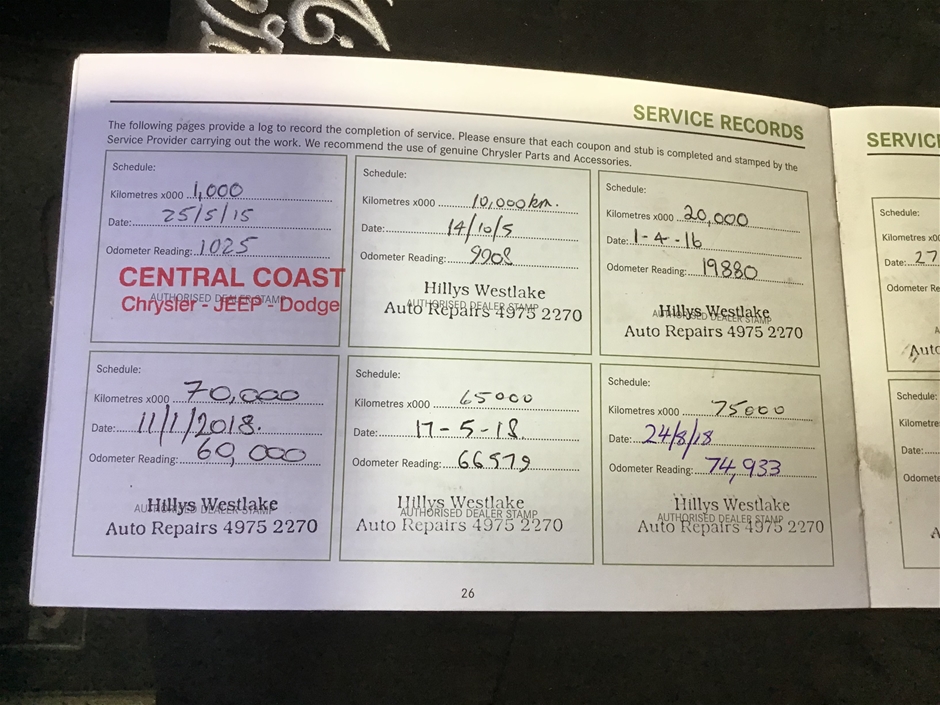 SERVICE RECORDS
The following pages provide a log to record the completion of service. Please ensure that each coupon and stub is completed and stamped by the
Service Provider carrying out the work. We recommend the use of genuine Chrysler Parts and Accessories.
Schedule:
Kilometres x000 1,000
Date: 25/5/15
Odometer Reading: 1025
CENTRAL COAST
AUTHORISED DEALER STAMP
Chrysler - JEEP - Dodge
Schedule:
Kilometres x000 10,000km.
Date: 14/10/5
Odometer Reading: 9908
Hillys Westlake
AUTHORISED DEALER STAMP
Auto Repairs 4975 2270
Schedule:
Kilometres x000 20,000
Date: 1-4-16
Odometer Reading: 19880
Hillys Westlake
AUTHORISED DEALER STAMP
Auto Repairs 4975 2270
Schedule:
Kilometres x000 70,000
Date: 11/1/2018.
Odometer Reading: 60,000
Hillys Westlake
AUTHORISED DEALER STAMP
Auto Repairs 4975 2270
Schedule:
Kilometres x000 65000
Date: 17-5-18.
Odometer Reading: 66579
Hillys Westlake
AUTHORISED DEALER STAMP
Auto Repairs 4975 2270
Schedule:
Kilometres x000 75000
Date: 24/8/18
Odometer Reading: 74,933
Hillys Westlake
AUTHORISED DEALER STAMP
Auto Repairs 4975 2270
26
SERVIC
Schedule:
Kilometres x00
Date: 27
Odometer Re
A
Auto
Schedule:
Kilometre
Date:
Odomete
A